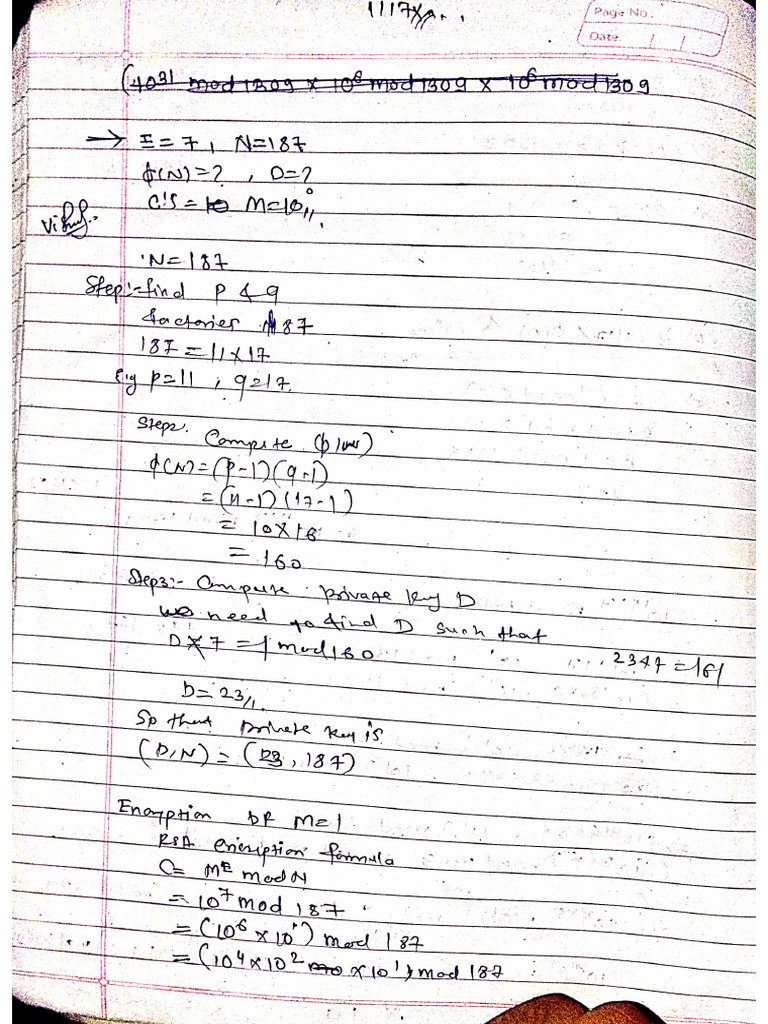 Page No.
Date
(40⁹¹ mod 1309 × 10⁶ mod 1309 × 10⁶ mod 1309
→ E = 7, N=187
ϕ(N)=? , D=?
C's = 10 M=10,,
N=187
Step:-find P & q
factories 187
187 = 11×17
p=11 , q=17
Step2. Compute
ϕ(N)=(p-1)(q-1)
= (11-1) (17-1)
= 10×16
= 160
Step3:- Compute private key D
we need to find D such that
D×7 = 1 mod 160
2347 = 161
D= 23
So that private key is
(D,N) = (23, 187)
Encryption of M=1
RSA encription formula
C= M^E mod N
= 10⁷ mod 187
= (10⁶ × 10¹) mod 187
= (10⁴×10² × 10¹) mod 187